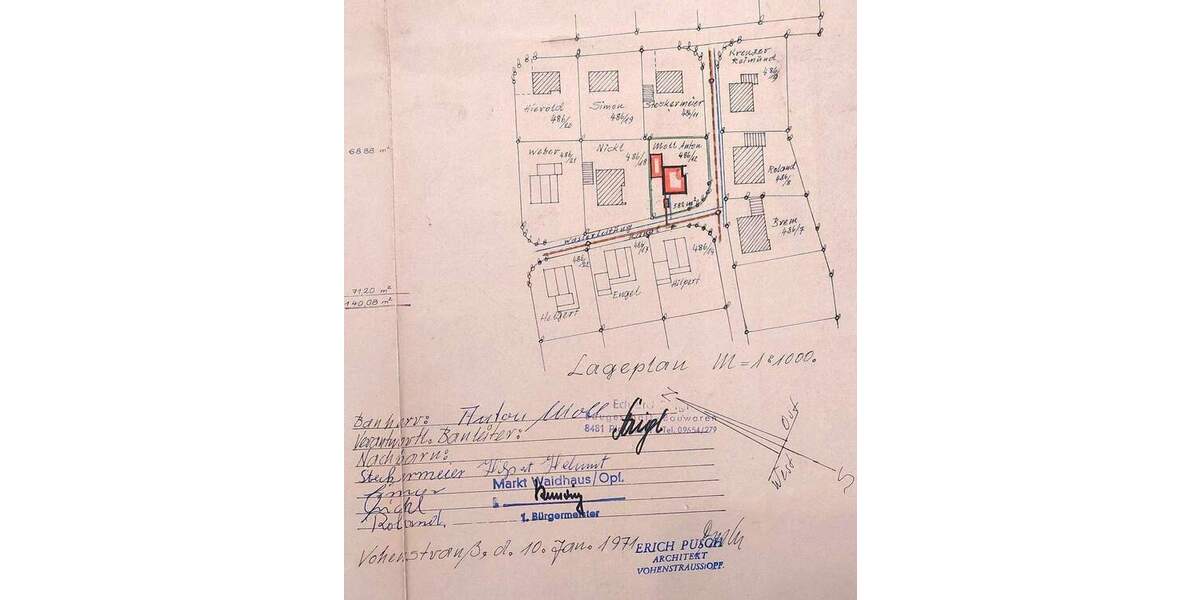 Kreuzer
Reimund
486/9
Hierold
486/20
Simon
486/19
Steckermeier
486/11
68.88 m²
Weber
486/21
Nickl
486/18
Moll Anton
486/12
582 m²
Roland
486/8
Brem
486/7
Wasserleitung
Kanal
486/22
486/14
71,20 m²
140,08 m²
Helgert
Engel
Hilpert
Lageplan M = 1:1000.
Bauherr: Anton Moll
Verantwortl. Bauleiter:
8481 Tel. 09654/279
Nachbarn:
Steckermeier Helmut
Markt Waidhaus/Opf.
Nickl
1. Bürgermeister
Roland.
N
Ost
West
S
Vohenstrauß, d. 10. Jan. 1971
ERICH PUSCH
ARCHITEKT
VOHENSTRAUSS/OPF.